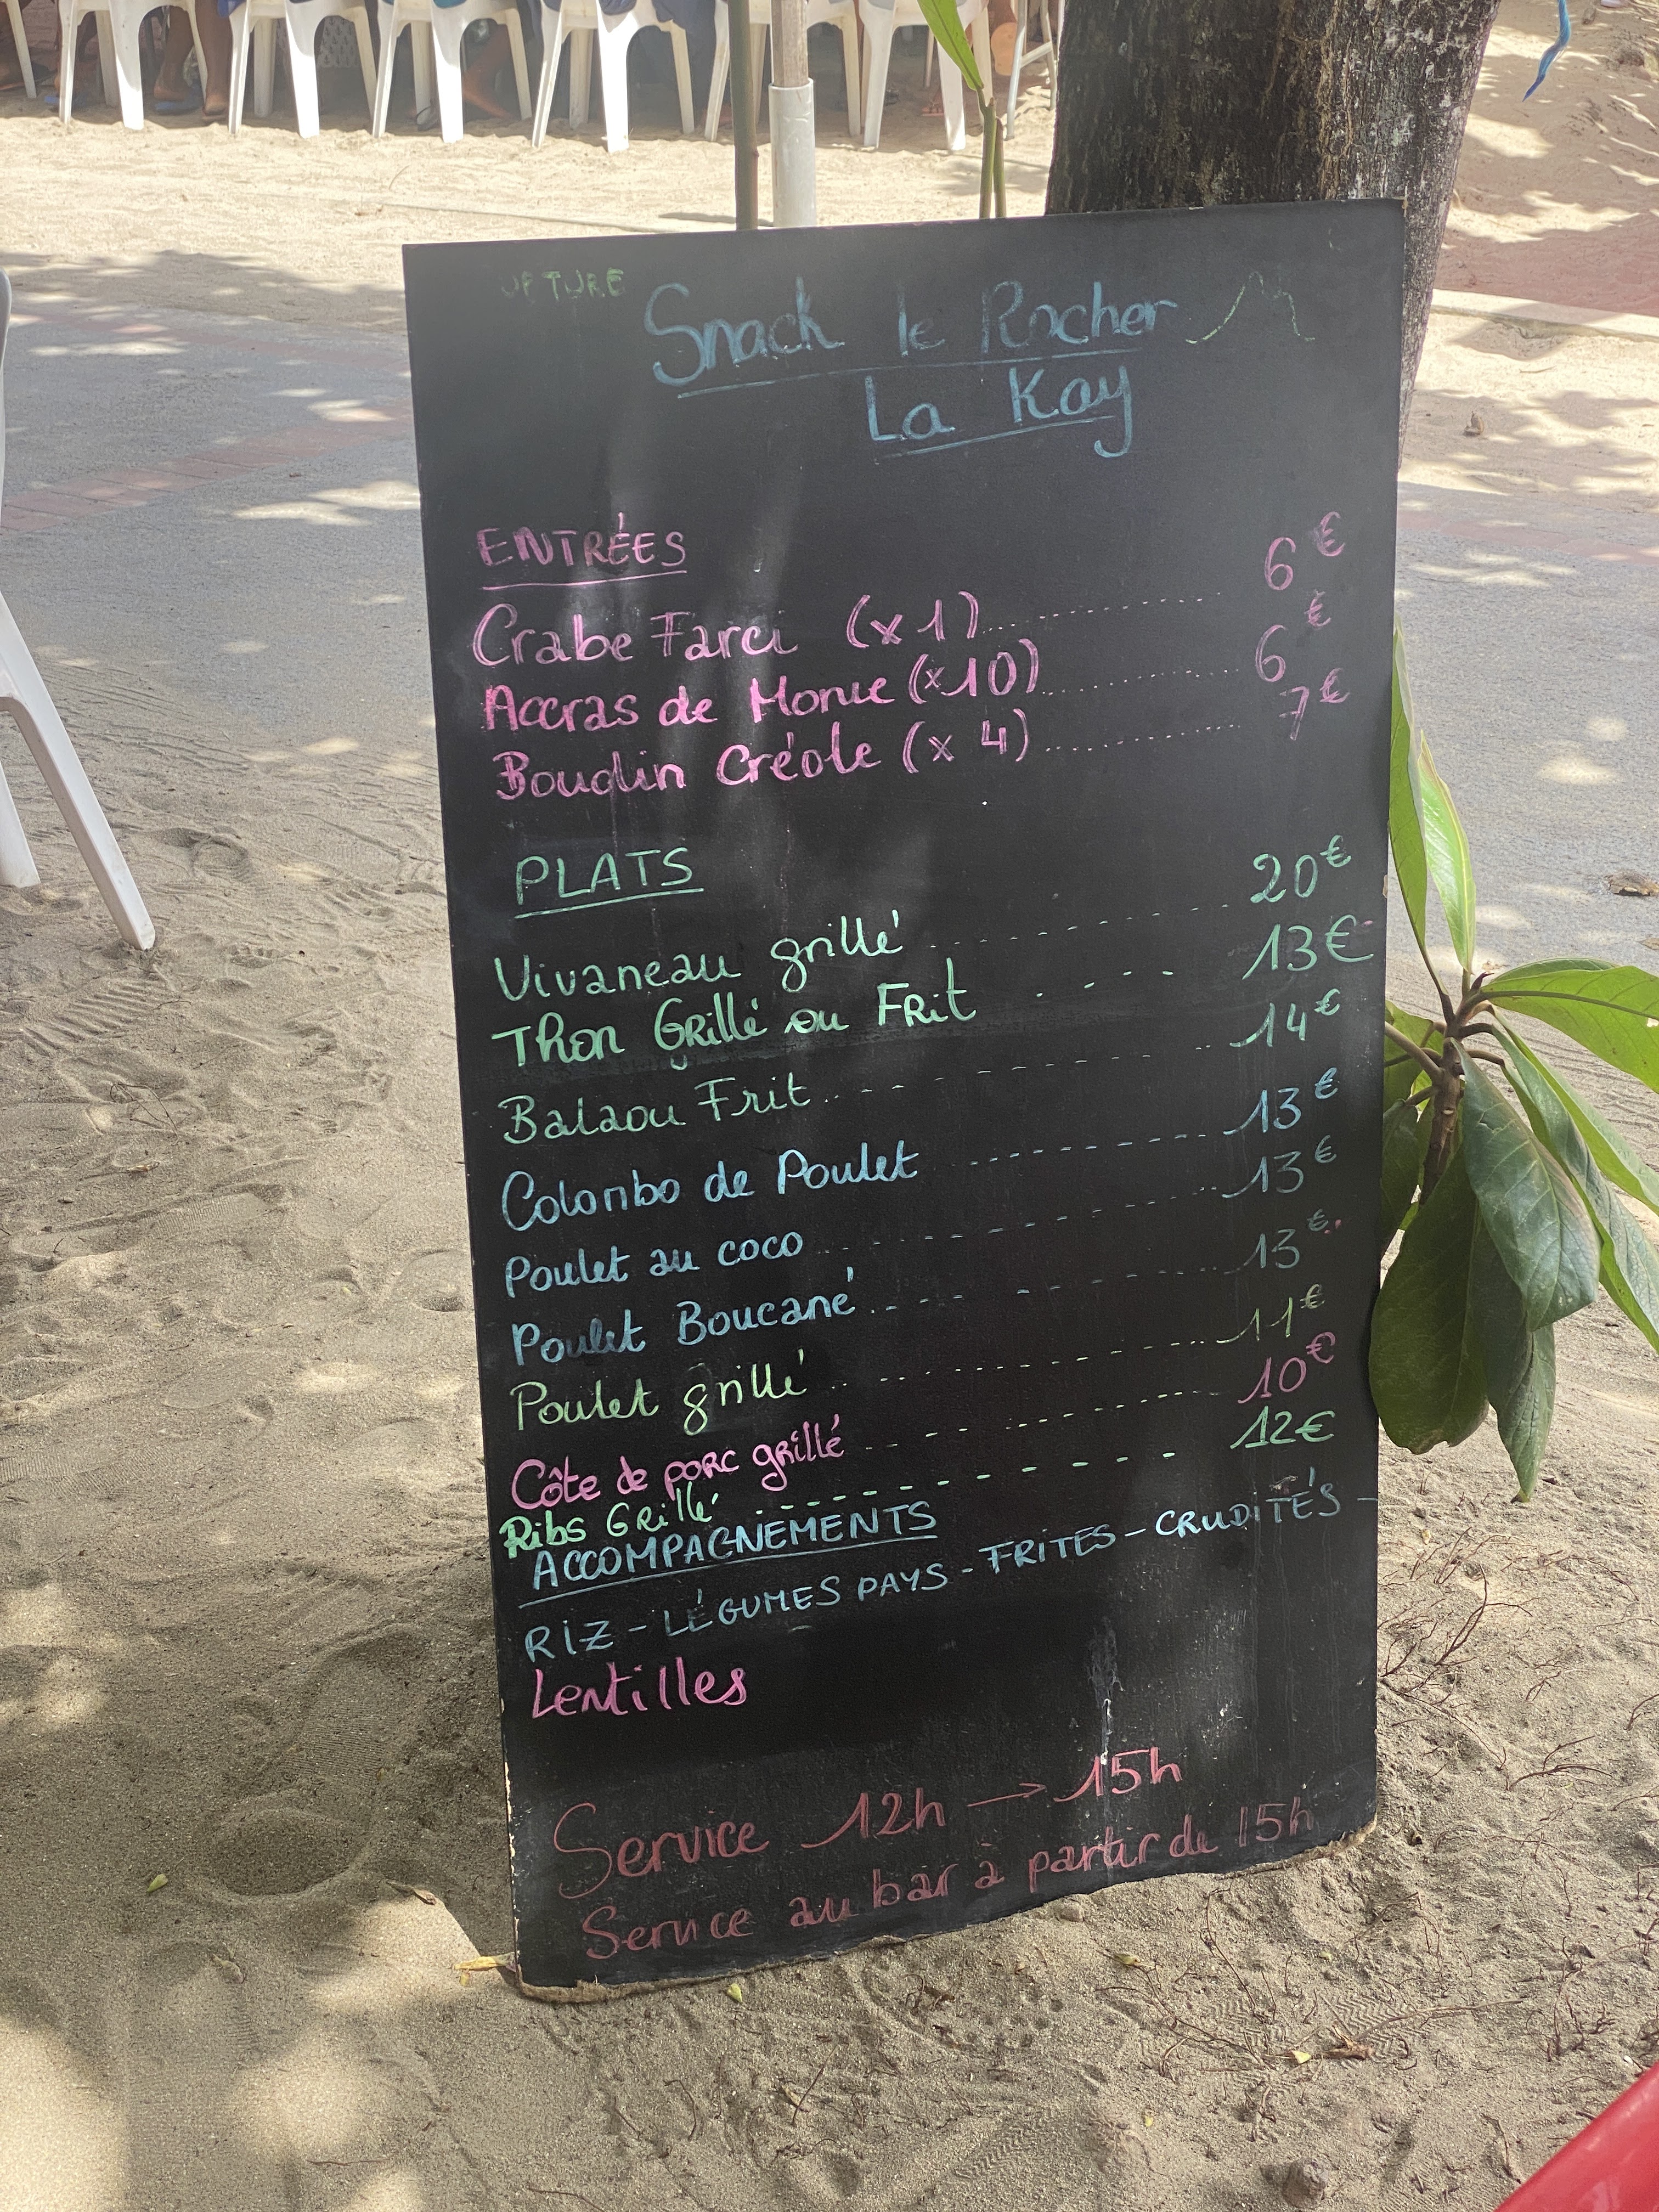 Snack le Rocher
La Kay
ENTRÉES
Crabe Farci (x1).......... 6€
Accras de Morue (x10).......... 6€
Boudin Créole (x 4).......... 7€
PLATS
Vivaneau grillé .......... 20€
Thon Grillé ou Frit - - - - 13€
Balaou Frit - - - - 14€
Colombo de Poulet - - - - 13€
Poulet au coco - - - - 13€
Poulet Boucané - - - - 13€
Poulet grillé - - - - 11€
Côte de porc grillé - - - - 10€
Ribs Grillé - - - - 12€
ACCOMPAGNEMENTS
RIZ - LÉGUMES PAYS - FRITES - CRUDITÉS -
Lentilles
Service 12h → 15h
Service au bar à partir de 15h